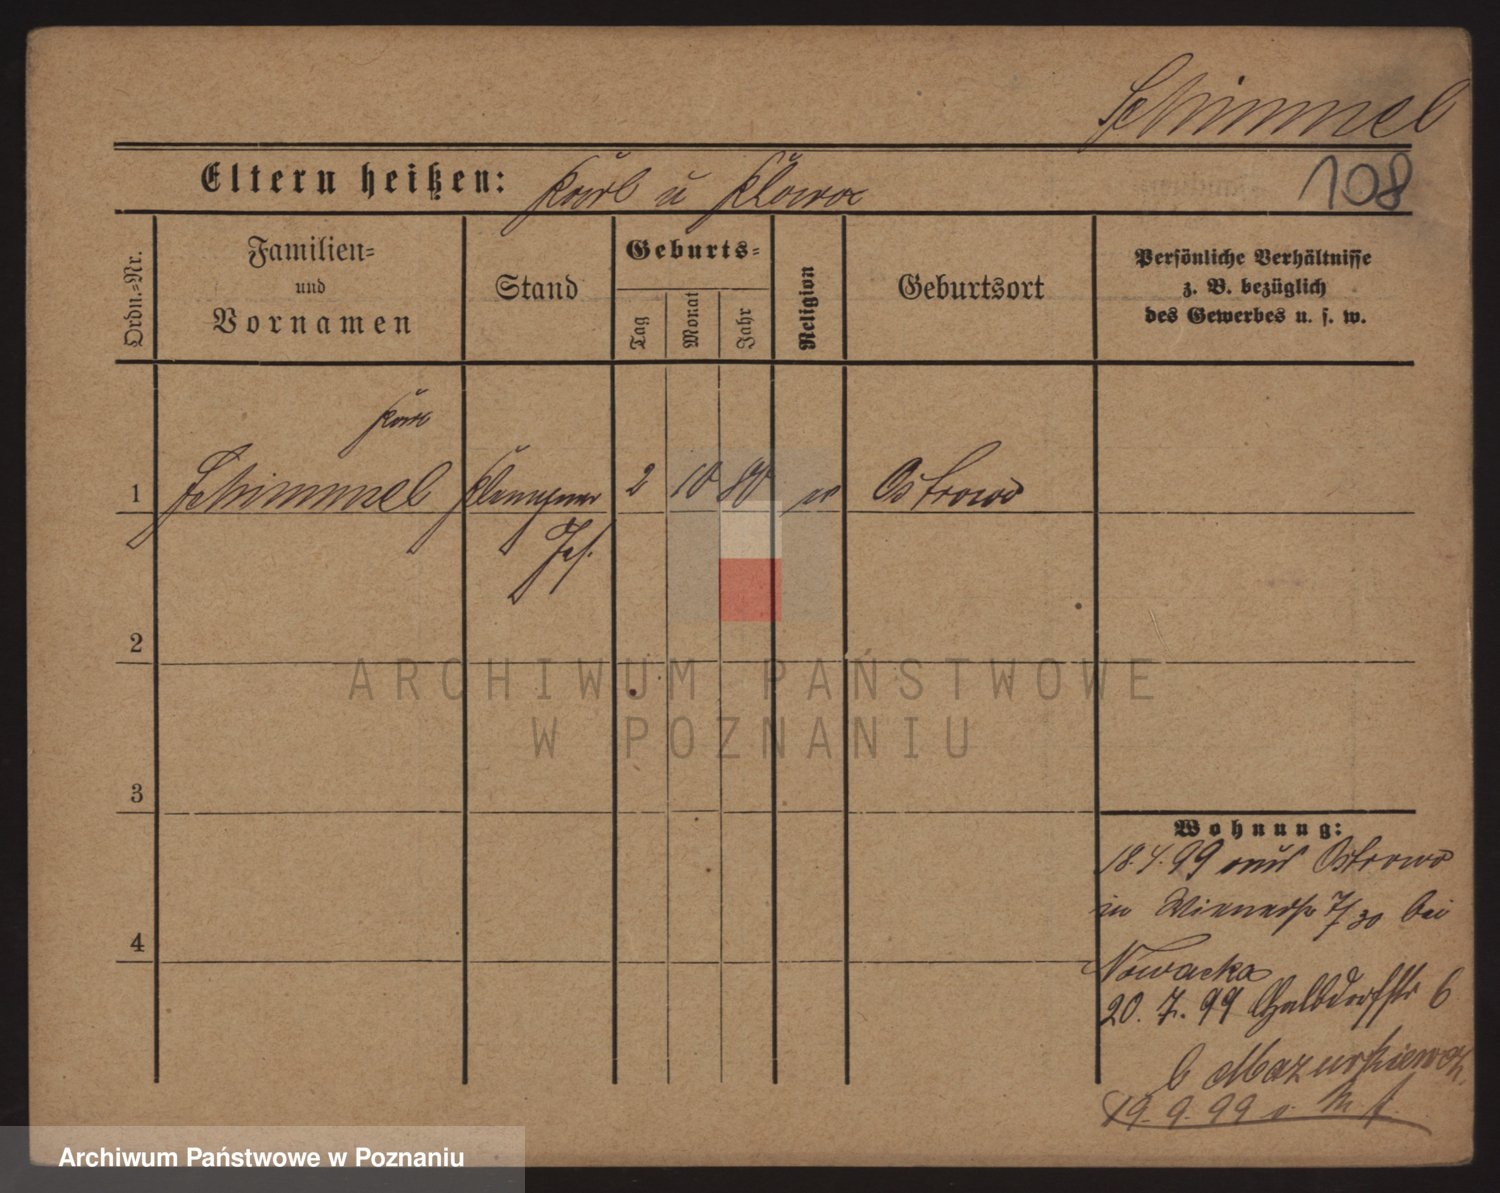 Schimmel
Eltern heißen: Karl u Klara
108
Ordn.-Nr.
Familien-
und
Vornamen
Stand
Geburts-
Tag
Monat
Jahr
Religion
Geburtsort
Persönliche Verhältnisse
z. B. bezüglich
des Gewerbes u. s. w.
Karl
1 Schimmel Klempner 2 10 80 ev Ostrowo
Ges.
2
3
4
Wohnung:
18.4.99 aus Ostrowo
in Wienerstr 7/30 bei
Nowacka
20. 7. 99 Halbdorfstr 6
b Mazurkiewicz.
19. 9. 99
ARCHIWUM PAŃSTWOWE
W POZNANIU
Archiwum Państwowe w Poznaniu